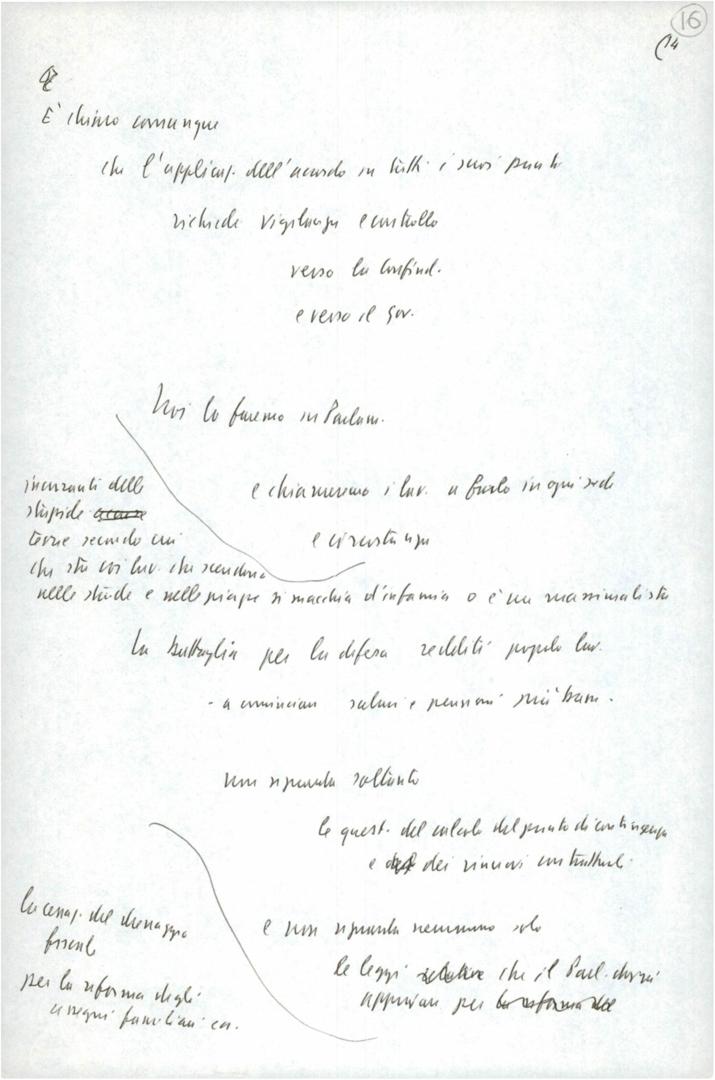 16
14
È chiaro comunque
che l'applicaz. dell'accordo in tutti i suoi punti
richiede vigilanza e controllo
verso la Confind.
e verso il Gov.
Noi lo faremo in Parlam.
e chiameremo i lav. a farlo in ogni sede
e circostanza
incuranti delle
stupide
teorie secondo cui
chi sta coi lav. che scendono
nelle strade e nelle piazze si macchia d'infamia o è un massimalista
La battaglia per la difesa redditi popolo lav.
- a cominciare salari e pensioni più bassi -
non riguarda soltanto
le quest. del calcolo del punto di contingenza
e dei rinnovi contrattuali
e non riguarda nemmeno solo
le leggi relative che il Parl. dovrà
approvare per la riforma del
la cessaz. del drenaggio
fiscale
per la riforma degli
assegni familiari